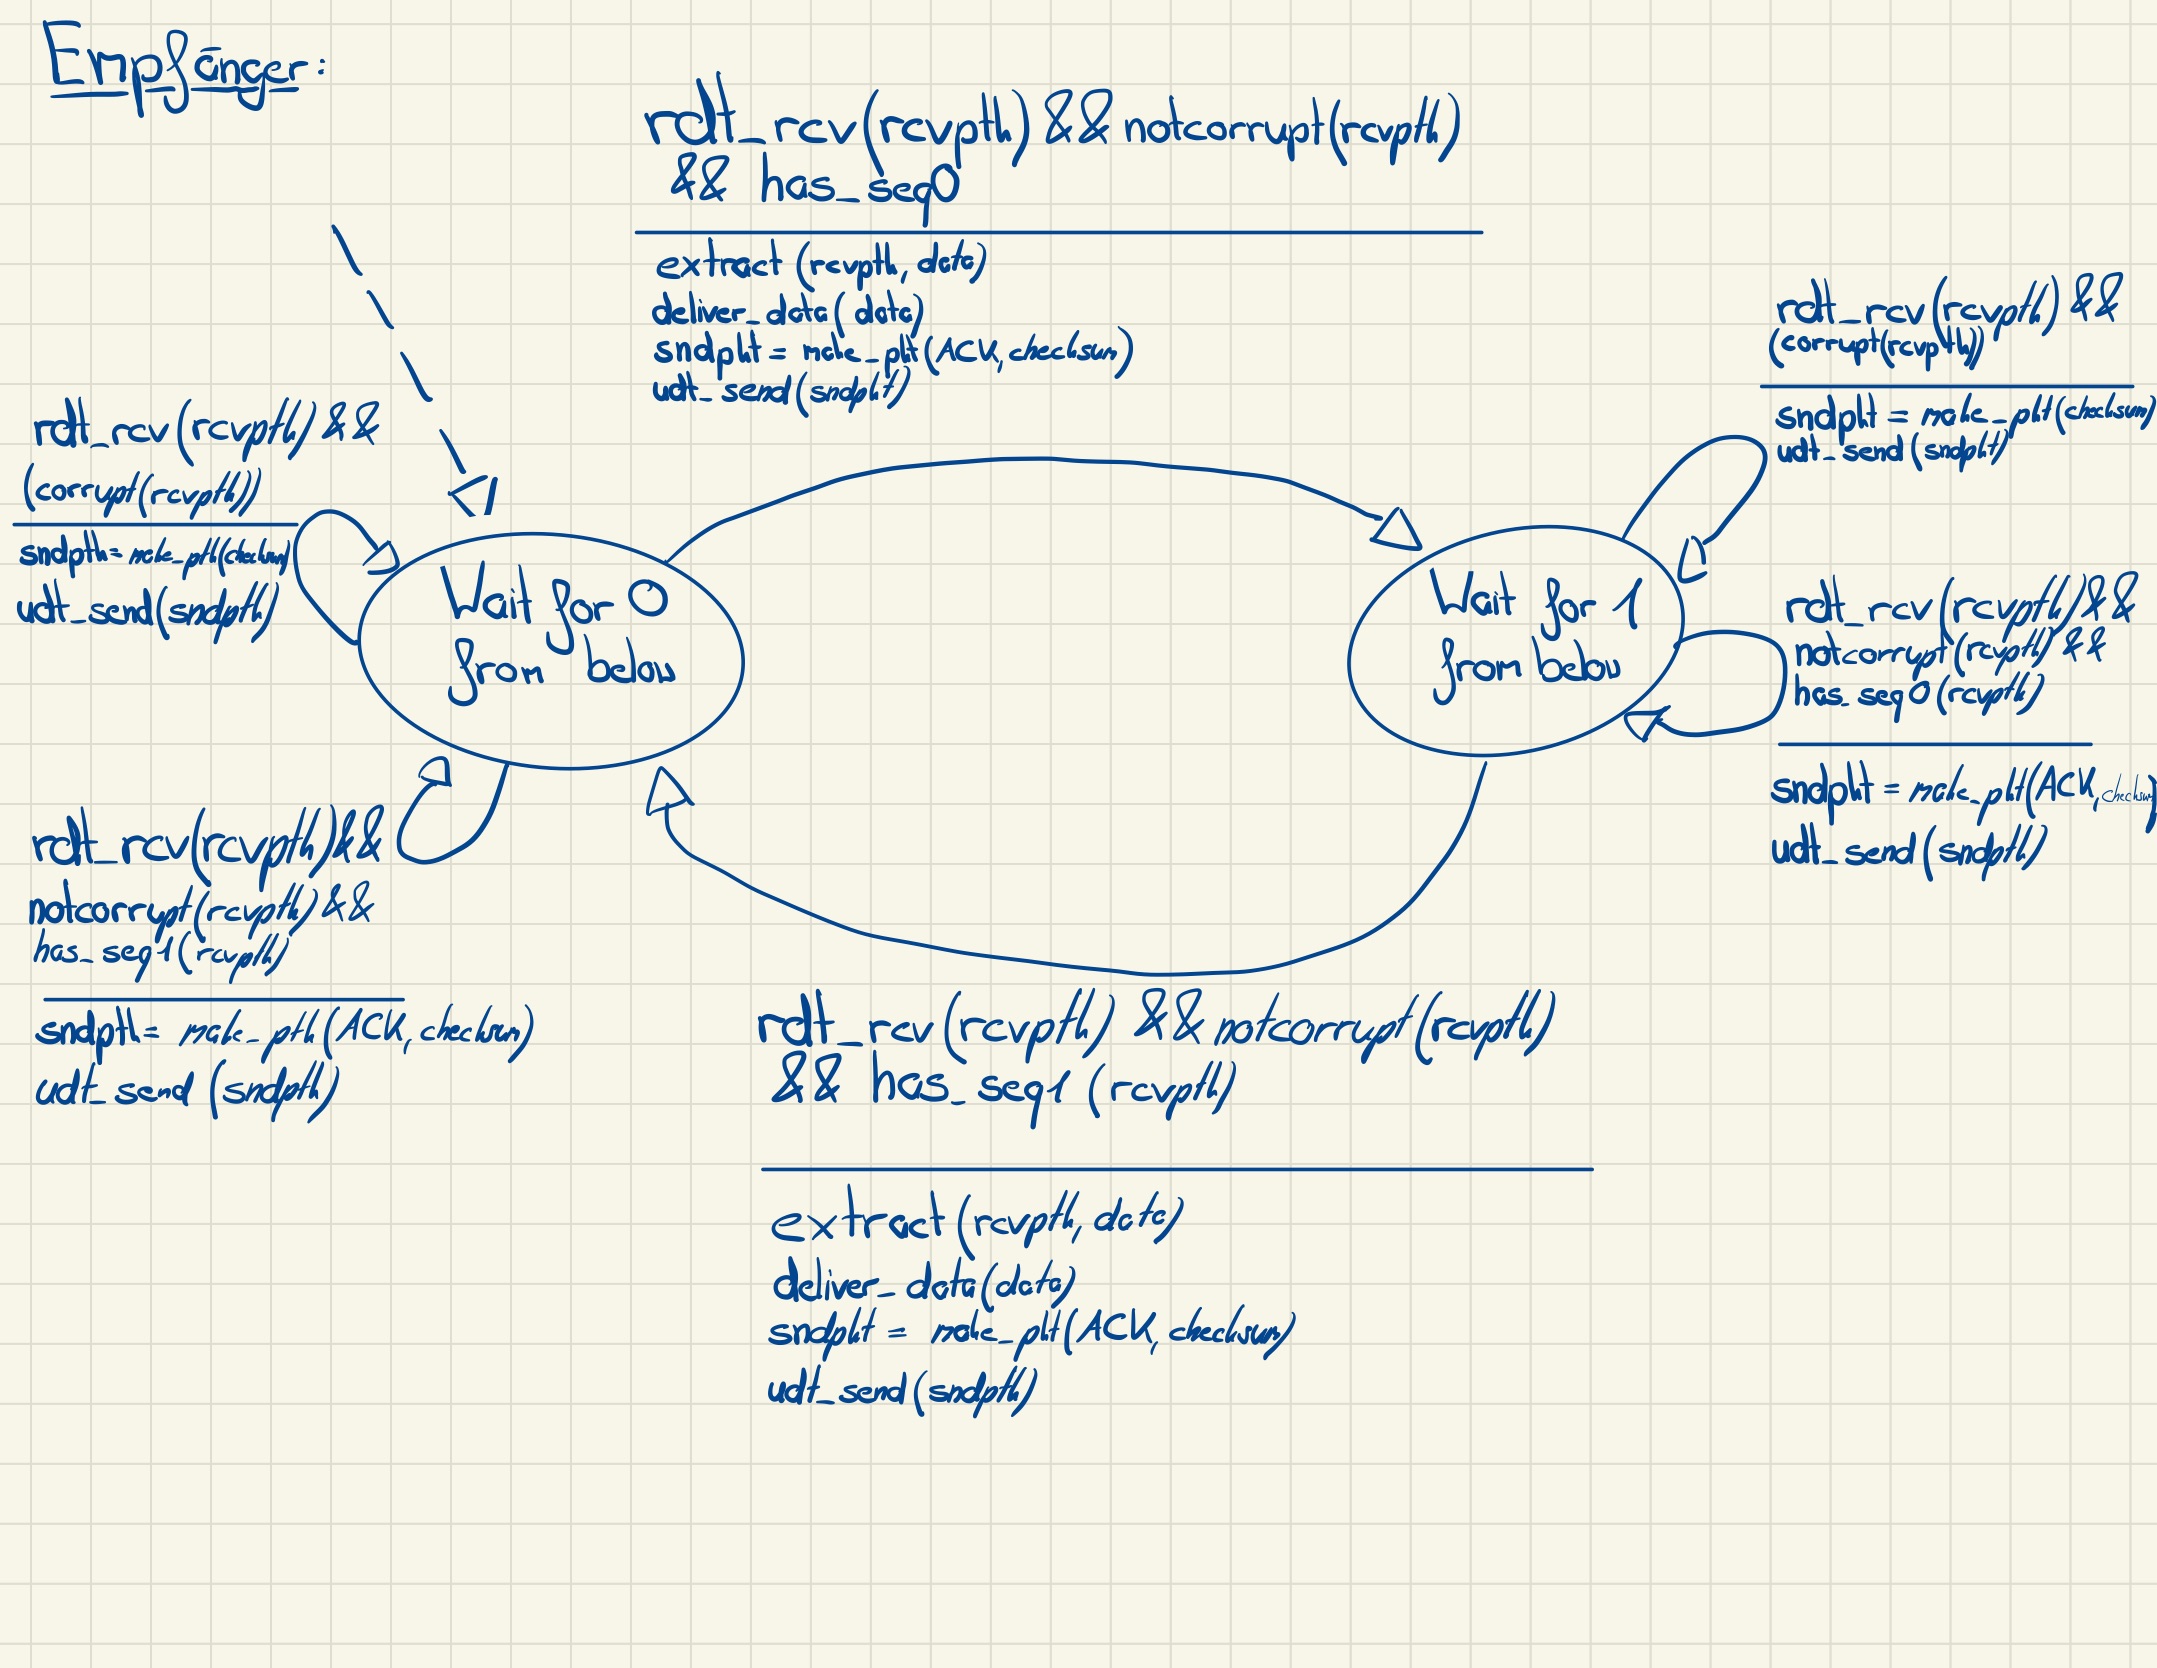 Empfänger:
rdt_rcv(rcvpth) && notcorrupt(rcvpth)
&& has_seq0
extract (rcvpth, data)
deliver_data(data)
sndpht = make_pht(ACK, checksum)
udt_send(sndpht)
rdt_rcv(rcvpth) &&
(corrupt(rcvpth))
sndpth = make_pth(checksum)
udt_send(sndpth)
Wait for 0
from below
Wait for 1
from below
rdt_rcv(rcvpth) &&
(corrupt(rcvpth))
sndpht = make_pht(checksum)
udt_send(sndpht)
rdt_rcv(rcvpth) &&
notcorrupt(rcvpth) &&
has_seq0(rcvpth)
sndpht = make_pht(ACK, checksum)
udt_send(sndpth)
rdt_rcv(rcvpth) &&
notcorrupt(rcvpth) &&
has_seq1(rcvpth)
sndpth = make_pth(ACK, checksum)
udt_send (sndpth)
rdt_rcv(rcvpth) && notcorrupt(rcvpth)
&& has_seq1 (rcvpth)
extract(rcvpth, data)
deliver_data(data)
sndpht = make_pht(ACK, checksum)
udt_send(sndpth)